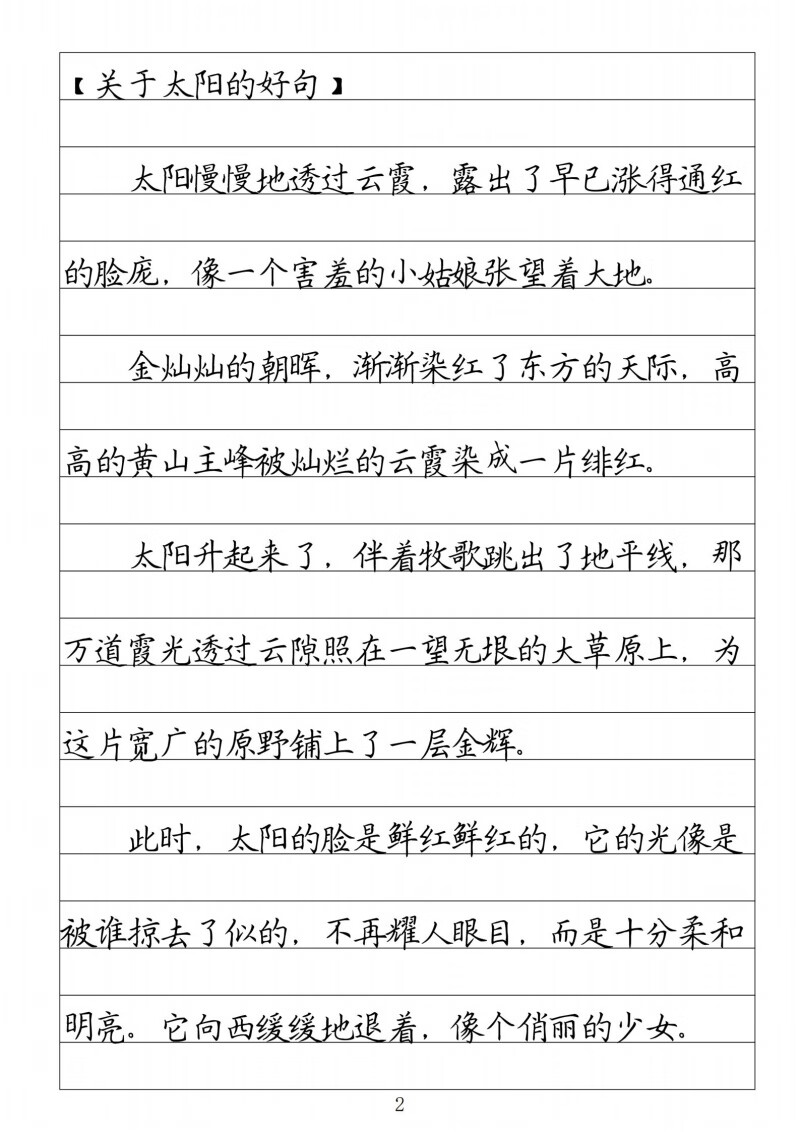 【关于太阳的好句】
太阳慢慢地透过云霞，露出了早已涨得通红
的脸庞，像一个害羞的小姑娘张望着大地。
金灿灿的朝晖，渐渐染红了东方的天际，高
高的黄山主峰被灿烂的云霞染成一片绯红。
太阳升起来了，伴着牧歌跳出了地平线，那
万道霞光透过云隙照在一望无垠的大草原上，为
这片宽广的原野铺上了一层金辉。
此时，太阳的脸是鲜红鲜红的，它的光像是
被谁掠去了似的，不再耀人眼目，而是十分柔和
明亮。它向西缓缓地退着，像个俏丽的少女。
2